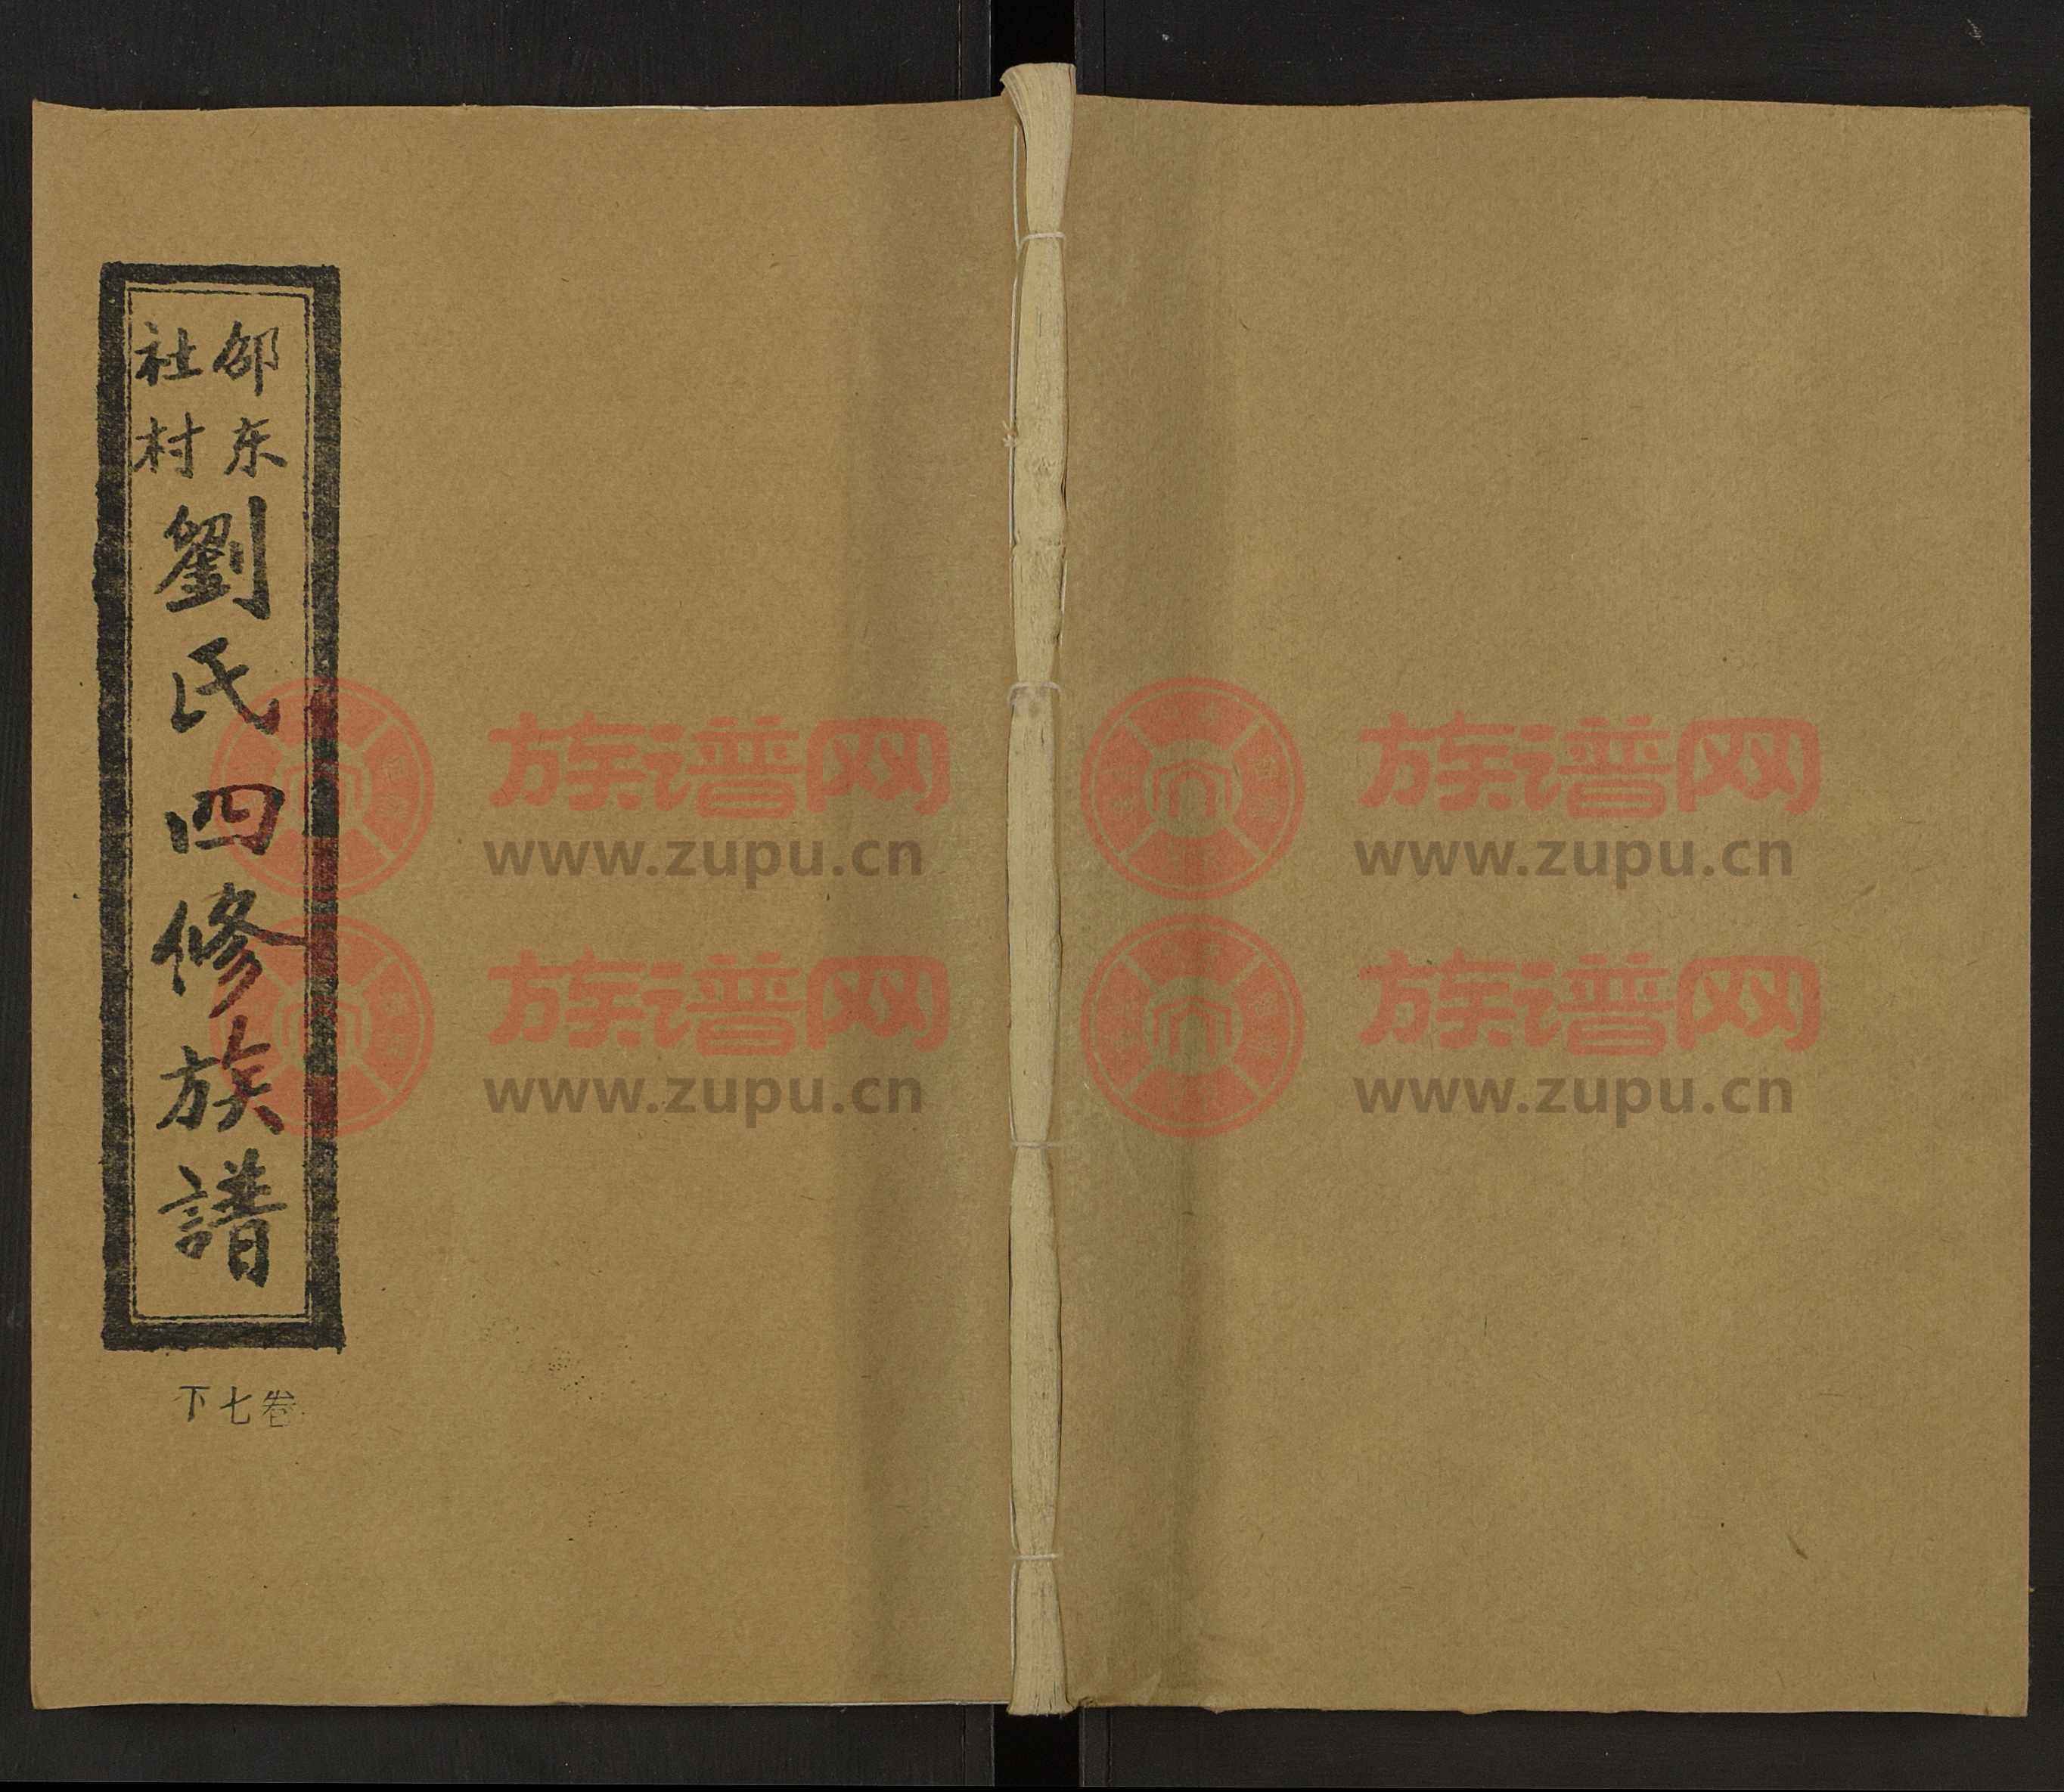 邵东
社村
劉氏四修族譜
卷七下
族谱网
www.zupu.cn
族谱网
www.zupu.cn
族谱网
www.zupu.cn
族谱网
www.zupu.cn